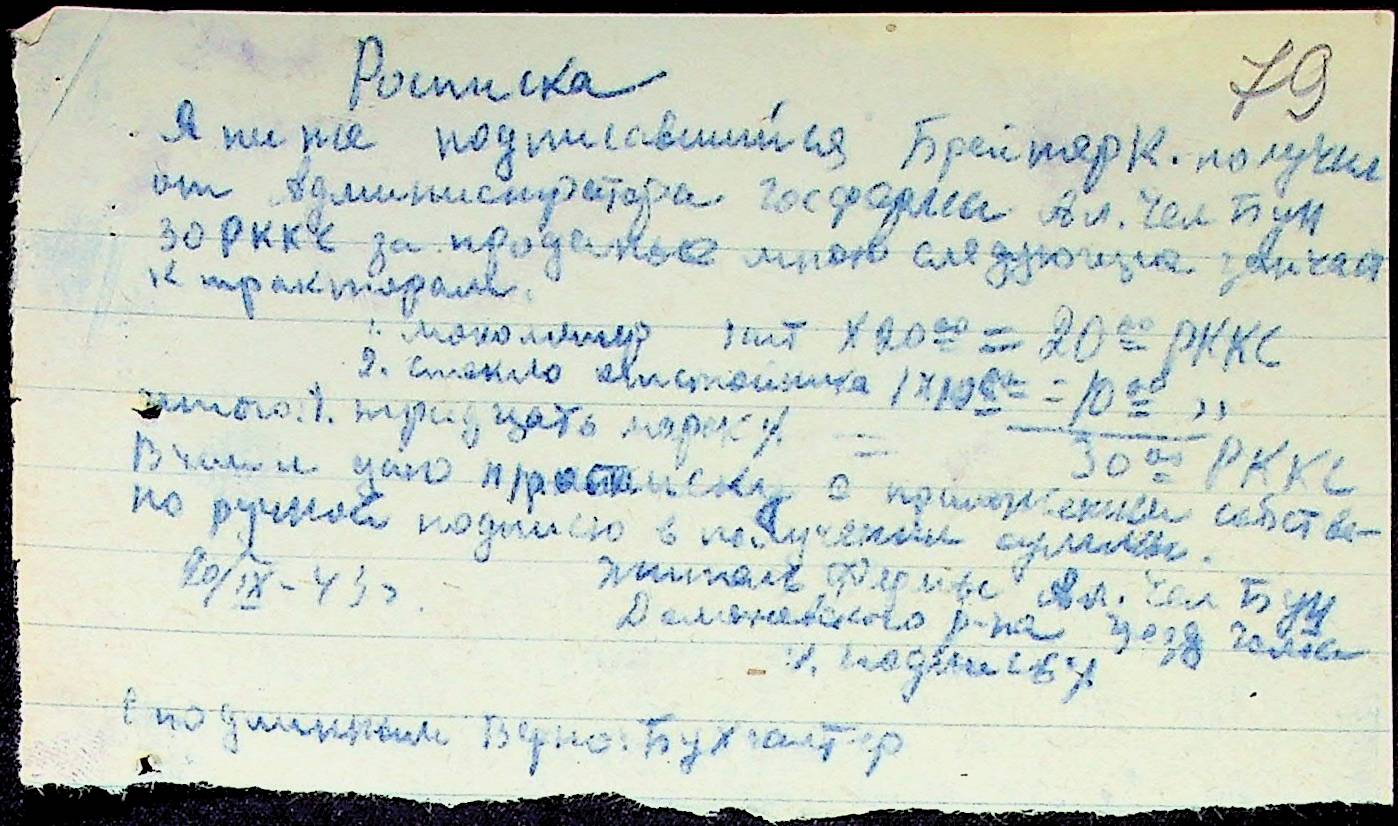 79
Росписка
Я ниже подписавшийся Брейтер К. получил
от Администратора Госфармы Ал. Чел Бун
30 РККС за проданые мною следующие запчаст
к тракторам.
1. манометр 1 шт х 20⁰⁰ = 20⁰⁰ РККС
2. стекло отстойника 1х10⁰⁰ = 10⁰⁰ "
итого: /. тридцать марок /. = 30⁰⁰ РККС
В чем и даю росписку с приложением собстве-
но ручной подписю в получении суммы.
20/IX-43 г. житель Фермы Ал. Чел Бун
Доманевского р-на уезд Голта
/. подпись /.
С подлинным Верно: Бухгалтер